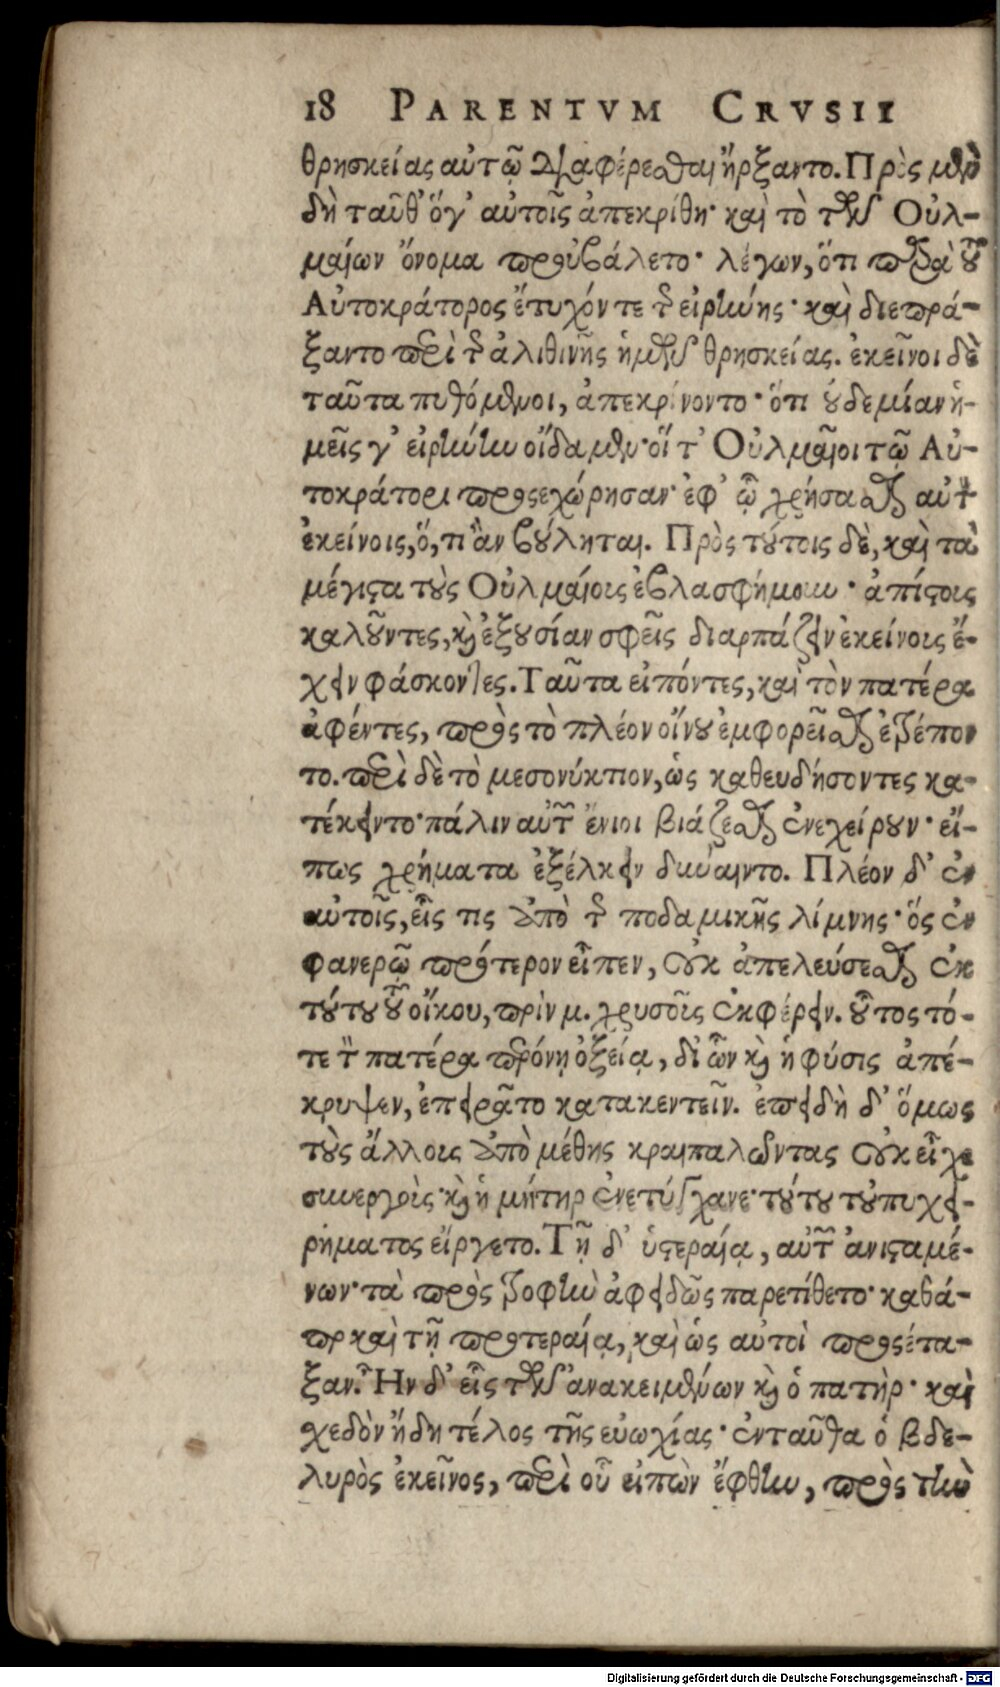 18 PARENTVM CRVSII
θρησκείας αὐτῷ διαφέρεσθαι ἤρξαντο. Πρὸς μὲν
δὴ ταῦθ' ὅγ' αὐτοῖς ἀπεκρίθη· καὶ τὸ τῶν Οὐλ-
μαίων ὄνομα προὐβάλετο· λέγων, ὅτι παρὰ τοῦ
Αὐτοκράτορος ἔτυχόν τε τῆς εἰρήνης· καὶ διεπρά-
ξαντο περὶ τῆς ἀλιθινῆς ἡμῶν θρησκείας. ἐκεῖνοι δὲ
ταῦτα πυθόμενοι, ἀπεκρίνοντο· ὅτι οὐδεμίαν ἡ-
μεῖς γ' εἰρήνην οἴδαμεν· οἵ τ' Οὐλμαῖοι τῷ Αὐ-
τοκράτορι προσεχώρησαν· ἐφ' ᾧ χρήσασθαι αὐτὸν
ἐκείνοις, ὅ, τι ἂν βούληται. Πρὸς τούτοις δὲ, καὶ τὰ
μέγιστα τοὺς Οὐλμαίους ἐβλασφήμουν· ἀπίστους
καλοῦντες, καὶ ἐξουσίαν σφεῖς διαρπάζειν ἐκείνους ἔ-
χειν φάσκοντες. Ταῦτα εἰπόντες, καὶ τὸν πατέρα
ἀφέντες, πρὸς τὸ πλέον οἴνου ἐμφορεῖσθαι ἐτρέπον
το. περὶ δὲ τὸ μεσονύκτιον, ὡς καθευδήσοντες κα-
τέκειντο· πάλιν αὐτῶν ἔνιοι βιάζεσθαι ἐνεχείρουν· εἴ-
πως χρήματα ἐξέλκειν δύναιντο. Πλέον δ' ἐν
αὐτοῖς, εἷς τις ὑπὸ τῆς ποδαμικῆς λίμνης· ὅς ἐν
φανερῷ πρότερον εἶπεν, οὐκ ἀπελεύσεσθαι ἐκ
τούτου τοῦ οἴκου, πρὶν μ. χρυσοῦς ἐκφέρειν. οὗτος τό-
τε τὸν πατέρα περόνῃ ὀξείᾳ, δι' ὧν καὶ ἡ φύσις ἀπέ-
κρυψεν, ἐπειρᾶτο κατακεντεῖν. ἐπειδὴ δ' ὅμως
τοὺς ἄλλους ὑπὸ μέθης κραιπαλῶντας οὐκ εἶχε
συνεργοὺς· καὶ ἡ μήτηρ ἐνετύγχανε· τούτου τοὐπιχει-
ρήματος εἴργετο. Τῇ δ' ὑστεραίᾳ, αὐτῶν ἀνισταμέ-
νων· τὰ πρὸς τροφὴν ἀφειδῶς παρετίθετο· καθά-
περ καὶ τῇ προτεραίᾳ, καὶ ὡς αὐτοὶ προσέτα-
ξαν. Ἦν δ' εἷς τῶν ἀνακειμένων καὶ ὁ πατὴρ· καὶ
σχεδὸν ἤδη τέλος τῆς εὐωχίας· ἐνταῦθα ὁ βδε-
λυρὸς ἐκεῖνος, περὶ οὗ εἰπὼν ἔφθην, πρὸς τὴν
Digitalisierung gefördert durch die Deutsche Forschungsgemeinschaft - DFG